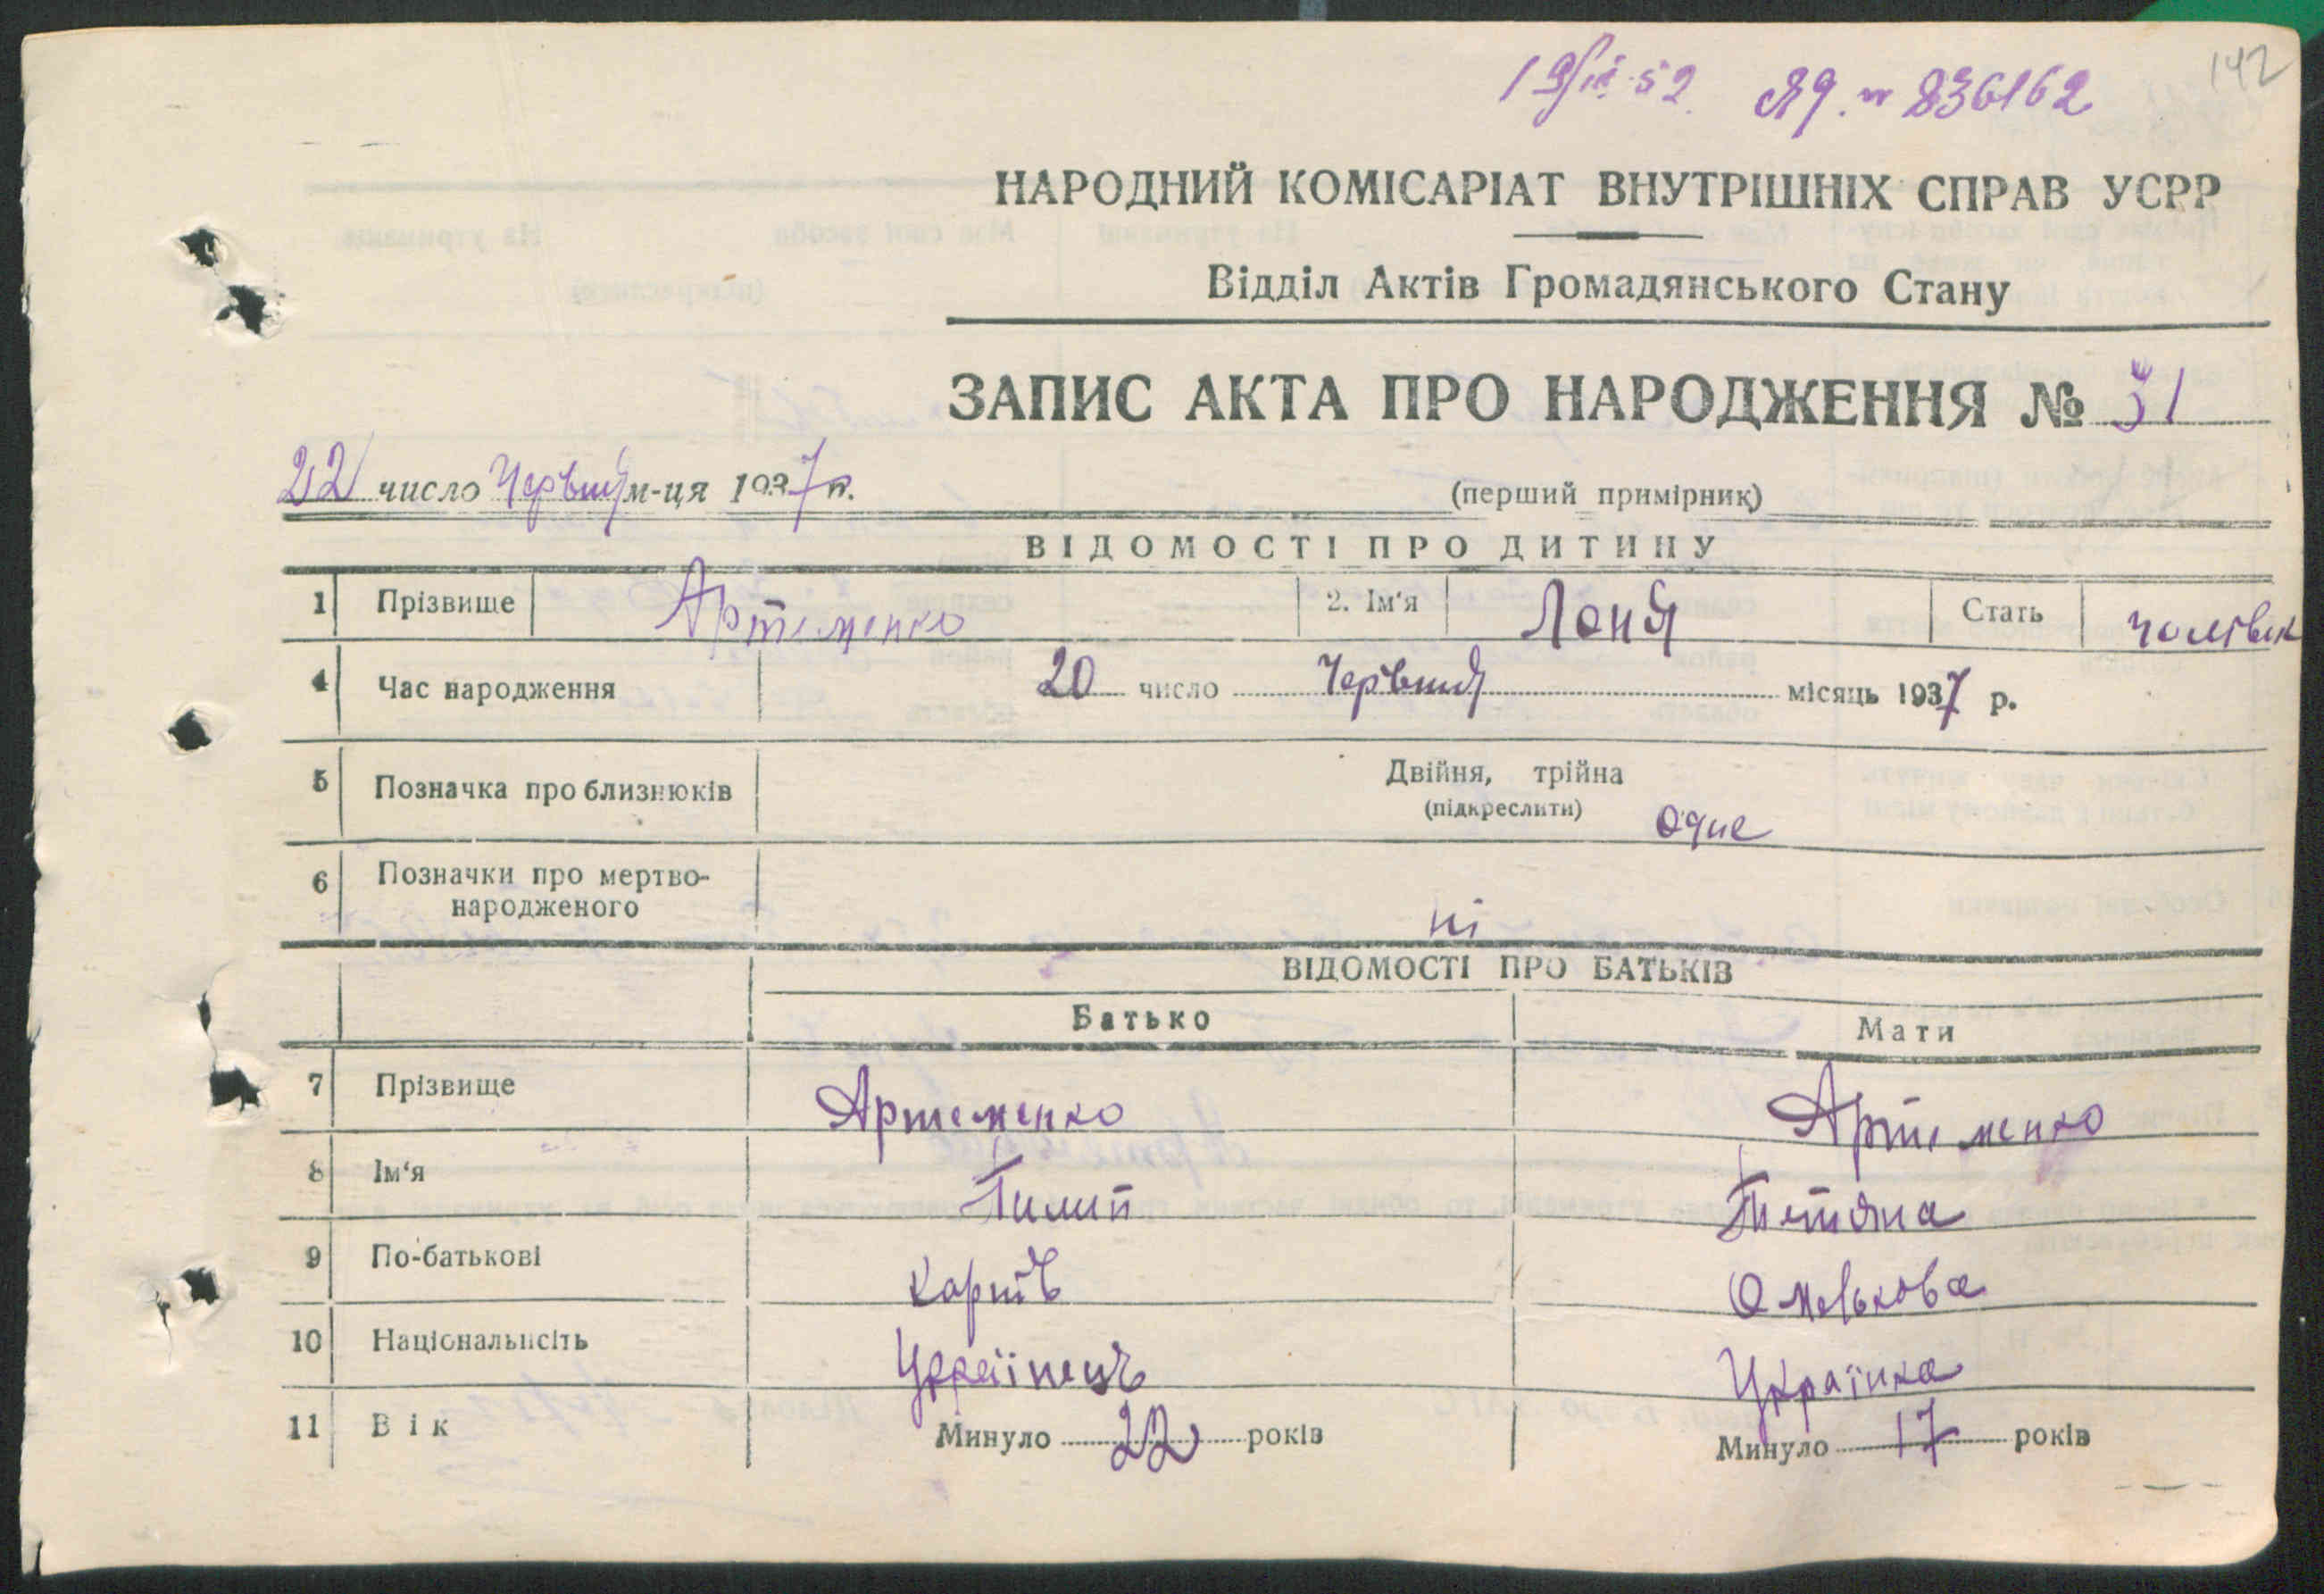 142
19/III 52 ЯЯ. № 836162
НАРОДНИЙ КОМІСАРІАТ ВНУТРІШНІХ СПРАВ УСРР
Відділ Актів Громадянського Стану
ЗАПИС АКТА ПРО НАРОДЖЕННЯ № 31
22 число Червня м-ця 1937 р.
(перший примірник)
ВІДОМОСТІ ПРО ДИТИНУ
1 Прізвище Артеменко 2. Ім'я Лоня Стать чоловік
4 Час народження 20 число Червня місяць 1937 р.
5 Позначка про близнюків Двійня, трійна
(підкреслити) Одне
6 Позначки про мертво-
народженого ні
ВІДОМОСТІ ПРО БАТЬКІВ
Батько Мати
7 Прізвище Артеменко Артеменко
8 Ім'я Пилип Тетяна
9 По-батькові Омелькова
10 Національність Українець Українка
11 Вік Минуло 22 років Минуло 17 років